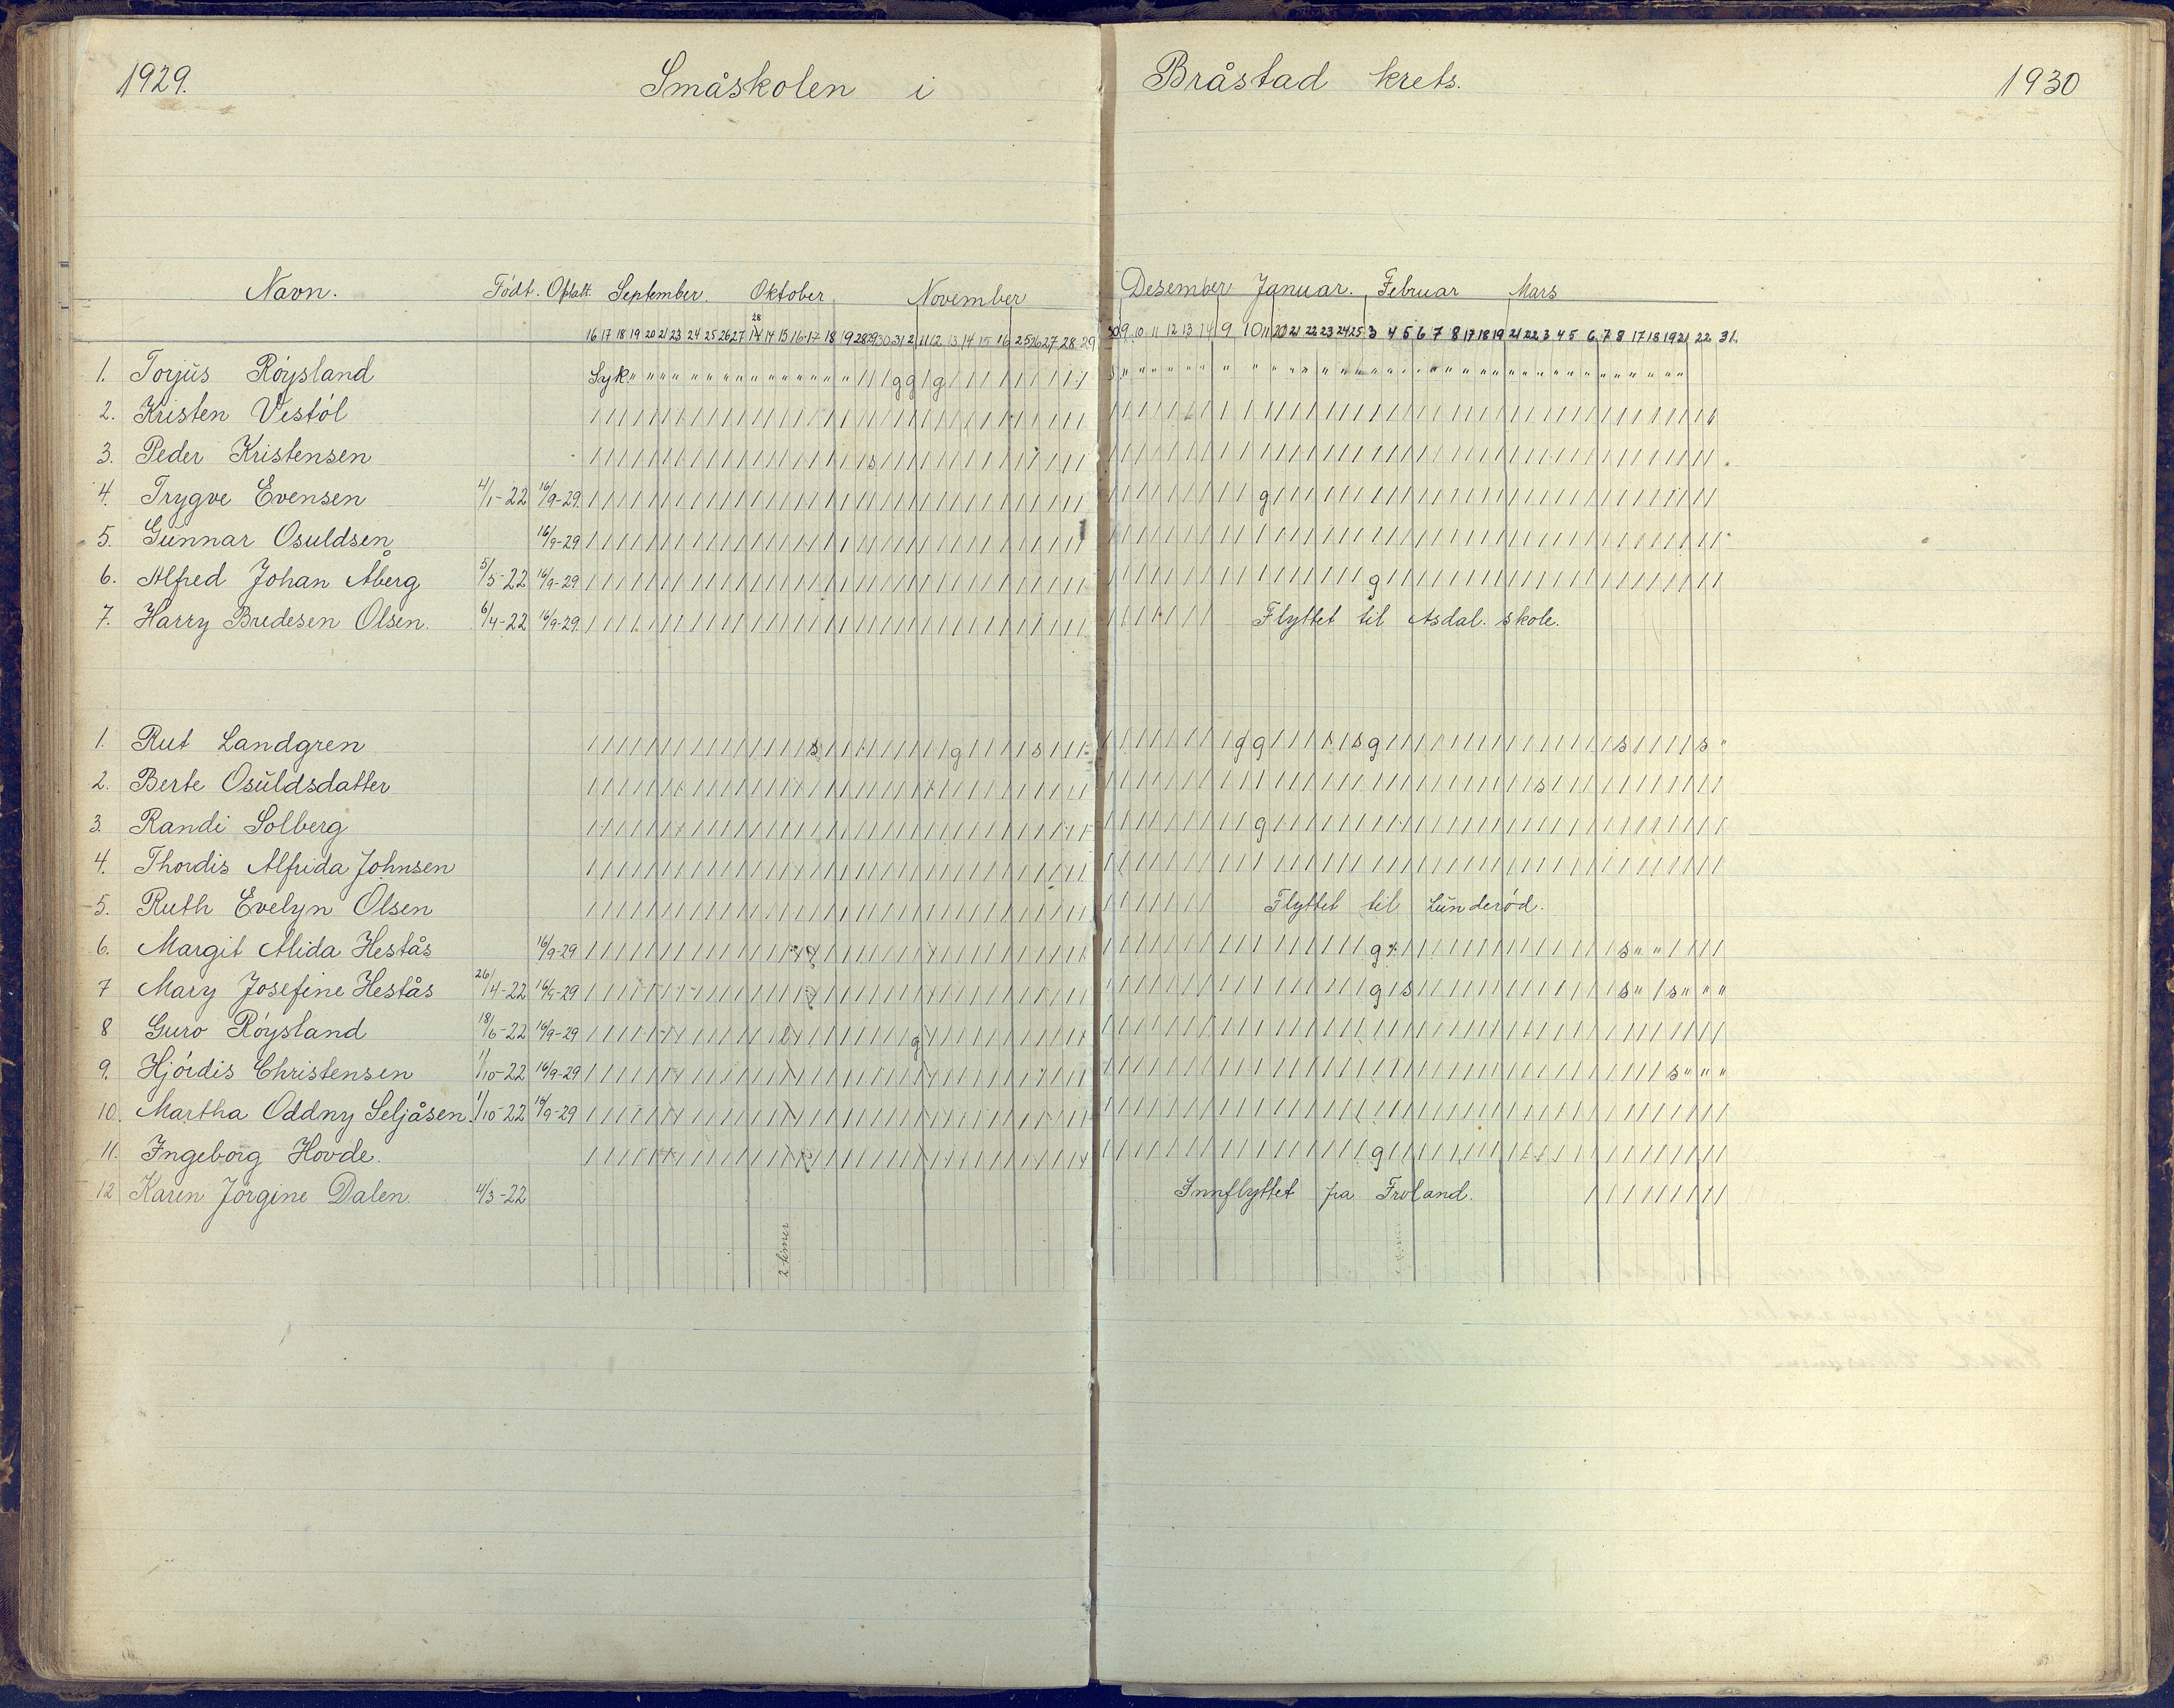 1929. Småskolen i Bråstad krets. 1930
Navn. Födt. Optatt. September. Oktober November Desember Januar. Februar Mars
28
16 17 18 19 20 21 23 24 25 26 27 14 15 16 17 18 19 28 29 30 31 2 11 12 13 14 15 16 25 26 27 28 29 30 9 10 11 12 13 14 9 10 11 20 21 22 23 24 25 3 4 5 6 7 8 17 18 19 21 22 3 4 5 6 7 8 17 18 19 21 22 31.
1. Torjus Röysland Syk. g g g s
2. Kristen Vestöl
3. Peder Kristensen s
4. Trygve Evensen 4/1-22 16/9-29. g
5. Gunnar Osuldsen 16/9-29
6. Alfred Johan Åberg 5/5-22 16/9-29 g
7. Harry Bredesen Olsen. 6/4-22 16/9-29. Flyttet til Asdal. skole.
1. Rut Landgren s g s g g s s g s s "
2. Berte Osuldsdatter s
3. Randi Solberg g
4. Thordis Alfrida Johnsen
5. Ruth Evelyn Olsen Flyttet til Lunderöd.
6. Margit Alida Hestås 16/9-29 g s " "
7 Mary Josefine Hestås 26/4-22 16/9-29 g s s " s " " "
8 Guro Röysland 18/6-22 16/9-29 g
9. Hjördis Christensen 1/10-22 16/9-29 s " " "
10. Martha Oddny Seljåsen. 1/10-22 16/9-29
11. Ingeborg Hovde. g
12 Karen Jörgine Dalen. 4/3-22 Innflyttet fra Froland.
2 timer